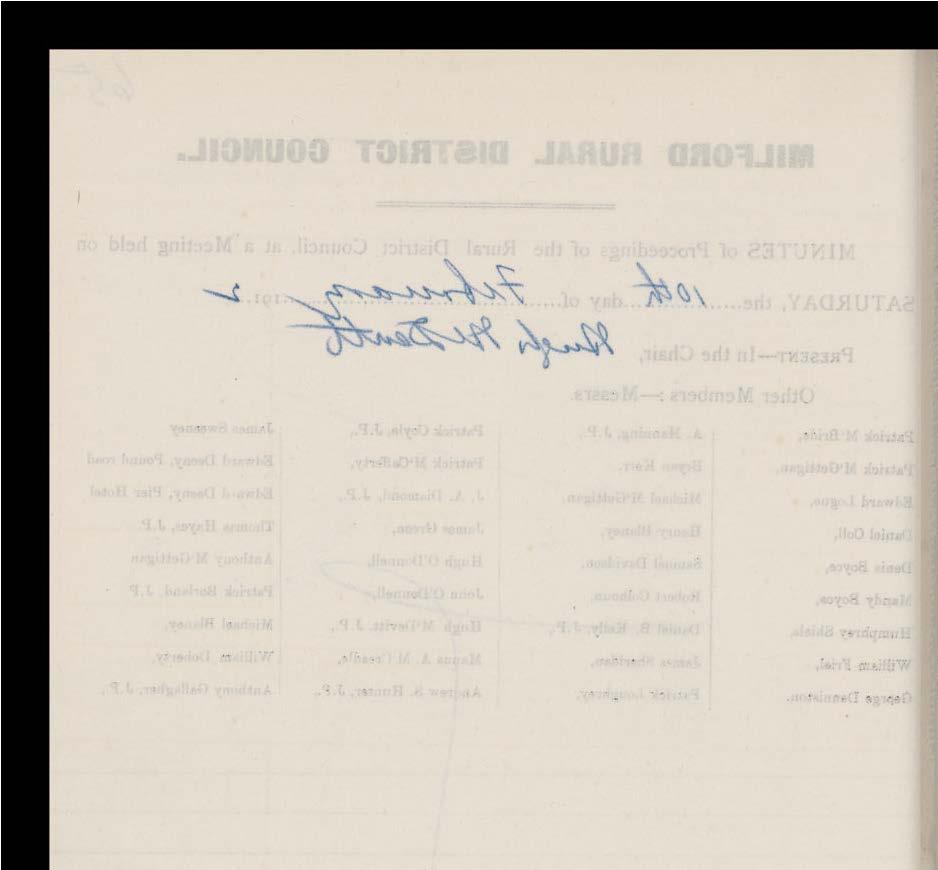 MILFORD RURAL DISTRICT COUNCIL.
MINUTES of Proceedings of the Rural District Council, at a Meeting held on
SATURDAY, the 10th day of February 1912
PRESENT—In the Chair, Hugh McDevitt
Other Members :—Messrs.
Patrick M'Bride, A. Hanning, J.P. Patrick Coyle, J.P., James Sweeney
Patrick M'Gettigan, Bryan Kerr. Patrick M'Cafferty, Edward Deeny, Pound road
Edward Logue, Michael M'Gettigan, J. A. Diamond, J.P., Edward Deeny, Pier Hotel
Daniel Coll, Henry Blaney, James Green, Thomas Hayes, J.P.
Denis Boyce, Samuel Davidson. Hugh O'Donnell, Anthony M'Gettigan
Mandy Boyce, Robert Colhoun, John O'Donnell, Patrick Borland, J.P
Humphrey Shiels, Daniel B. Kelly, J.P., Hugh M'Devitt, J.P., Michael Blaney,
William Friel, James Sheridan, Manus A. M'Creadle, William Doherty,
George Denniston. Patrick Loughrey, Andrew S. Hunter, J.P., Anthony Gallagher, J.P.,